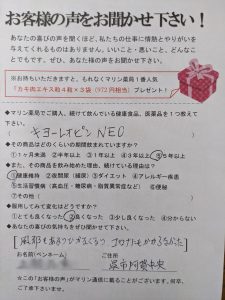 お客様の声をお聞かせ下さい!
あなたの喜びの声を聞くほど、私たちの仕事に情熱とやりがいを
与えてくれるものはありません。いいこと・悪いこと、どんなこ
とでもです。ぜひ、あなた様の声をお聞かせ下さい。
※お持ちいただきますと、もれなくマリン薬局1番人気
「カキ肉エキス粒4粒×8袋(972円相当)」プレゼント!
●マリン薬局でご購入、続けて飲んでいる健康食品、医薬品を1つ教えて
下さい。
キヨーレオピンNEO
●その商品はどのくらいの期間飲まれていますか?
①1ヶ月未満 ②半年以上 ③1年以上 ④3年以上 ⑤5年以上
●また、その商品を飲み始めた理由、続けている理由は?
①健康維持 ②夜間尿(頻尿) ③ダイエット ④アレルギー疾患
⑤生活習慣病(高血圧・糖尿病・脂質異常症など) ⑥便秘
⑦その他(
●服用してみて変化はどうですか?
①とても良くなった ②良くなった ③少し良くなった ④分からない
●あなたの喜びの気持ちをぜひお聞かせ下さい。
風邪もあまりひかなくなり コロナにもかからなかった
お名前(ペンネーム) ご住所
呉市阿賀中央
☆この「お客様の声」がマリン通信に載ることがございます。何卒、
ご了承下さいませ。